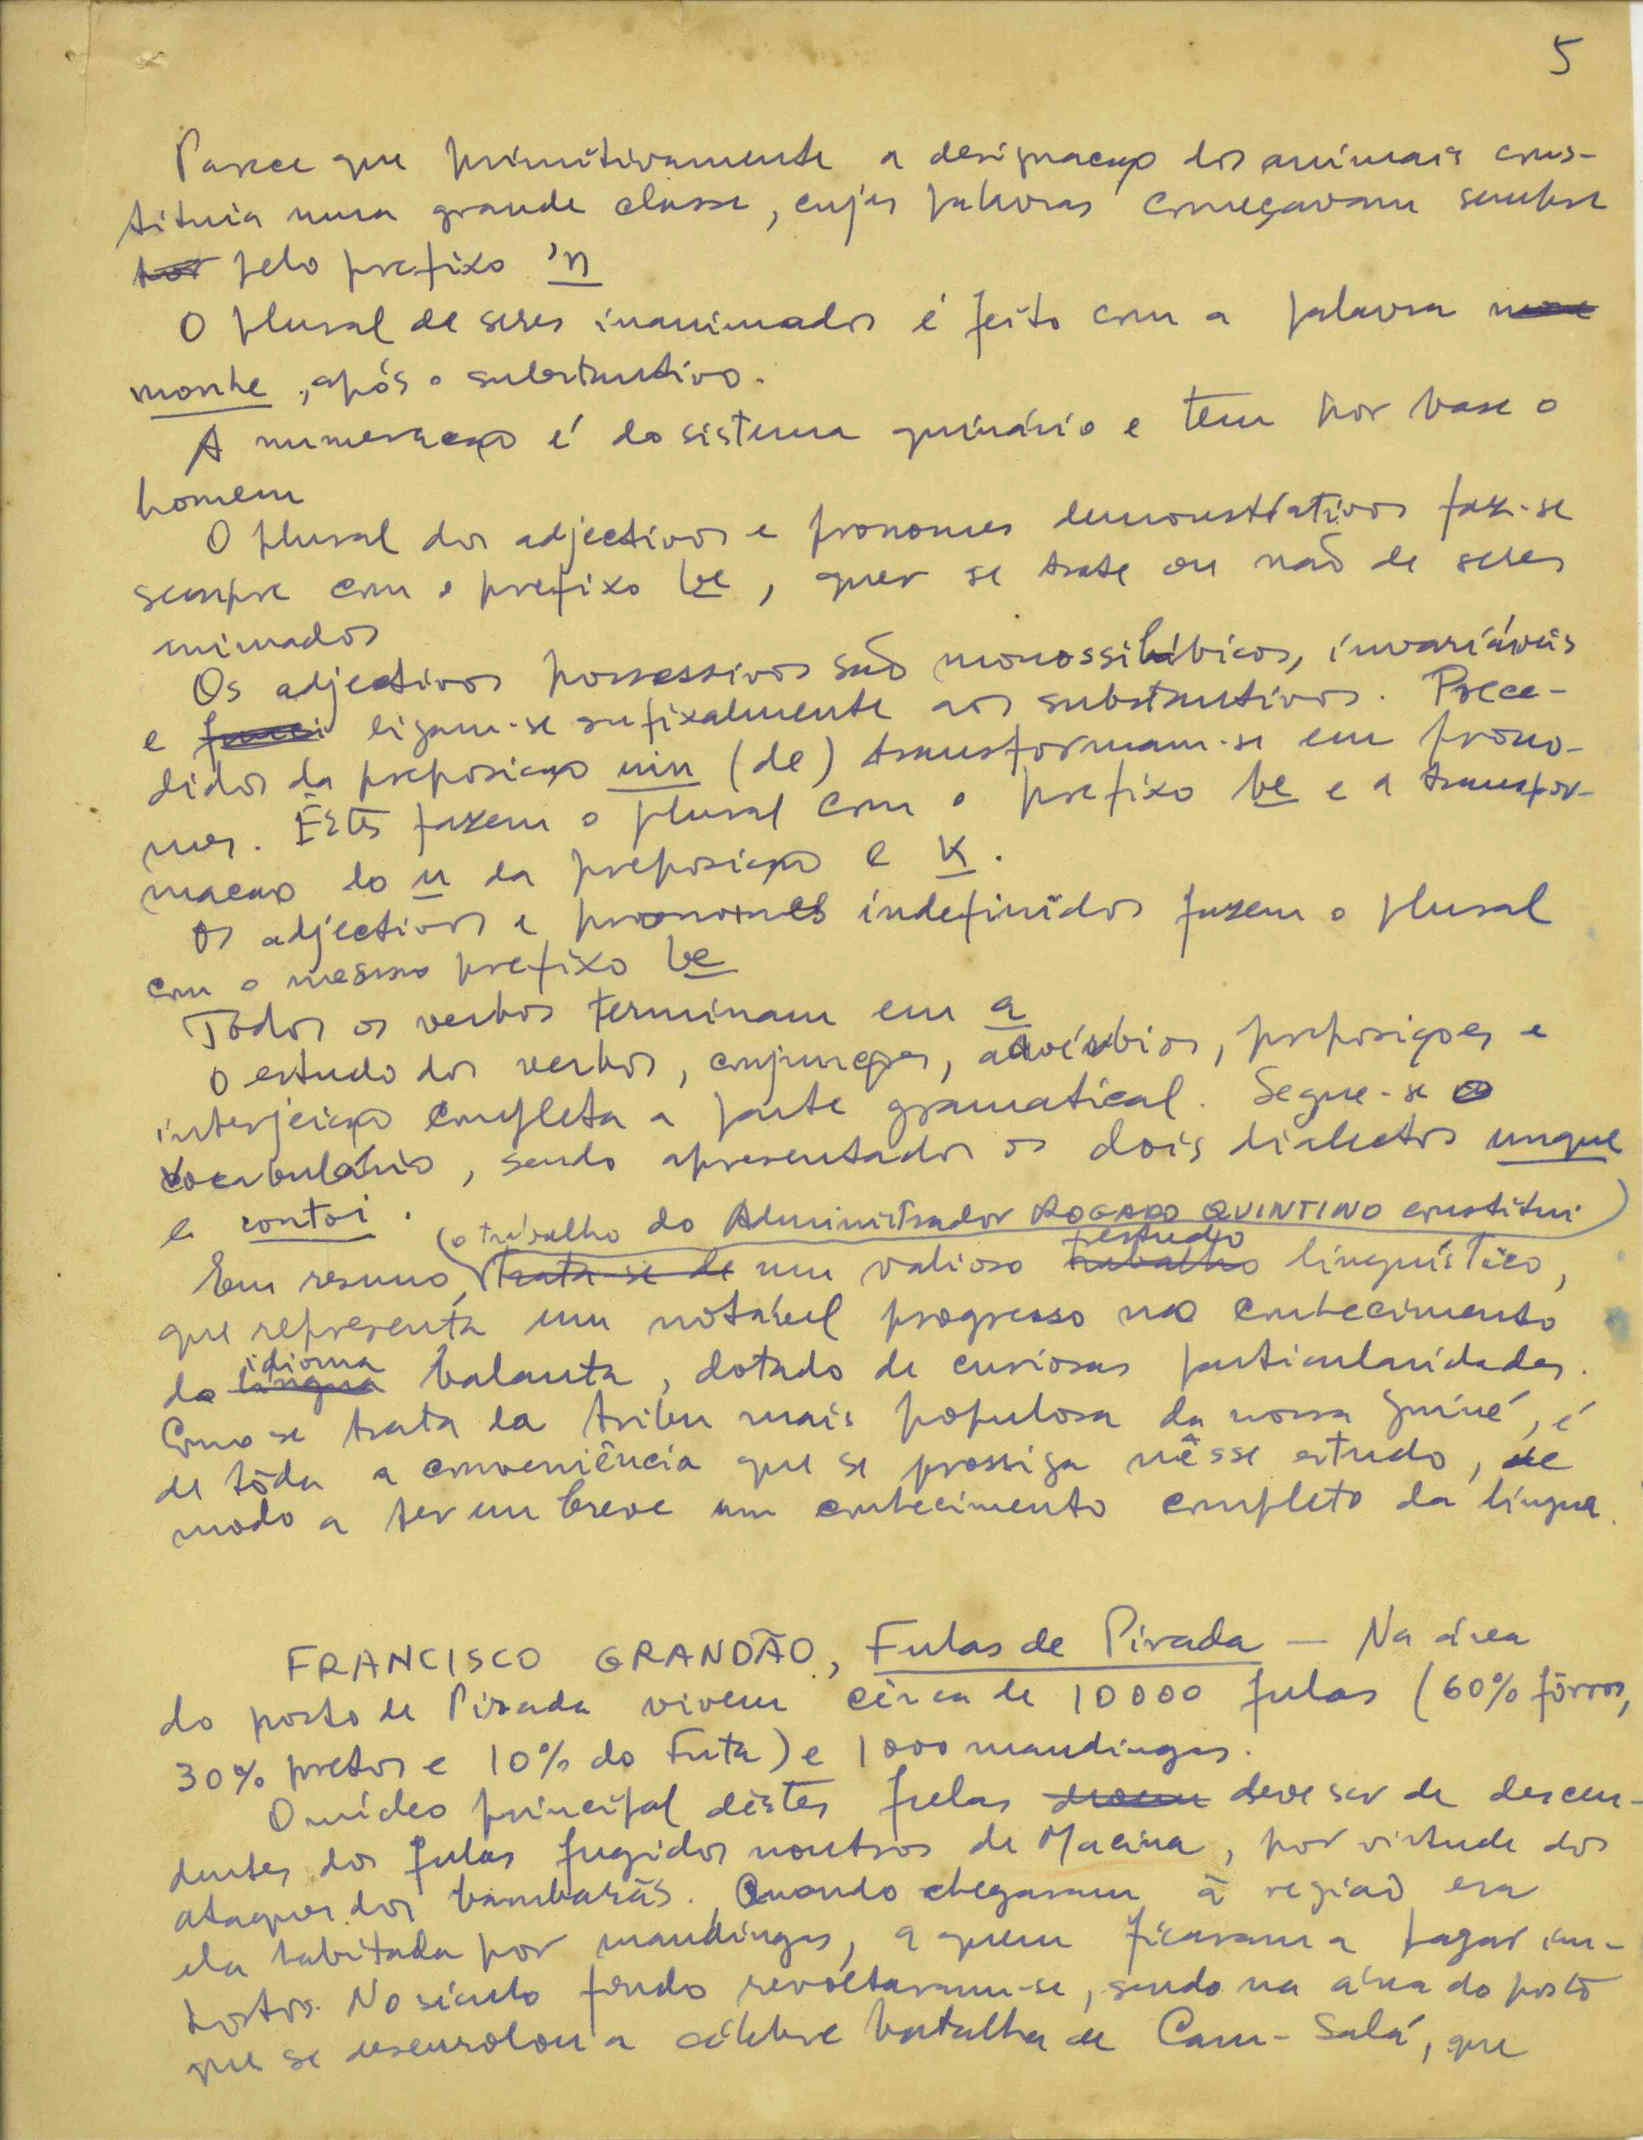 5
Parece que primitivamente a designação dos animais cons-
tituia uma grande classe, cujas palavras começavam sempre
pelo prefixo 'n
O plural de seres inanimados é feito com a palavra
monhe, após o substantivo.
A numeração é do sistema quinário e tem por base o
homem
O plural dos adjectivos e pronomes demonstrativos faz-se
sempre com o prefixo be, quer se trate ou não de seres
animados
Os adjectivos possessivos são monossilábicos, invariáveis
e ligam-se sufixalmente aos substantivos. Prece-
didos da preposição nin (de) transformam-se em prono-
mes. Êstes fazem o plural com o prefixo be e a transfor-
mação do n da preposição e k.
Os adjectivos e pronomes indefinidos fazem o plural
com o mesmo prefixo be
Todos os verbos terminam em a
O estudo dos verbos, conjunções, advérbios, preposições e
interjeição completa a parte gramatical. Segue-se o
vocabulário, sendo apresentados os dois dialectos unque
e contoi.
(o trabalho do Administrador ROGADO QUINTINO constitui)
estudo
Em resumo, trata-se de um valioso trabalho linguístico,
que representa um notável progresso no conhecimento
idioma
do língua balanta, dotado de curiosas particularidades.
Como se trata da tribu mais populosa da nossa Guiné, é
de tôda a conveniência que se prossiga nêsse estudo, de
modo a ter em breve um conhecimento completo da língua.
FRANCISCO GRANDÃO, Fulas de Pirada — Na área
do posto de Pirada vivem cêrca de 10000 fulas (60% fôrros,
30% pretos e 10% do Futa) e 1000 mandingas.
O núcleo principal dêstes fulas deve ser de descen-
dentes dos fulas fugidos noutros de Macina, por virtude dos
ataques dos bambarãs. Quando chegaram à região era
ela habitada por mandingas, a quem ficaram a pagar im-
postos. No século findo revoltaram-se, sendo na área do posto
que se desenrolou a célebre batalha de Cam-Salá, que